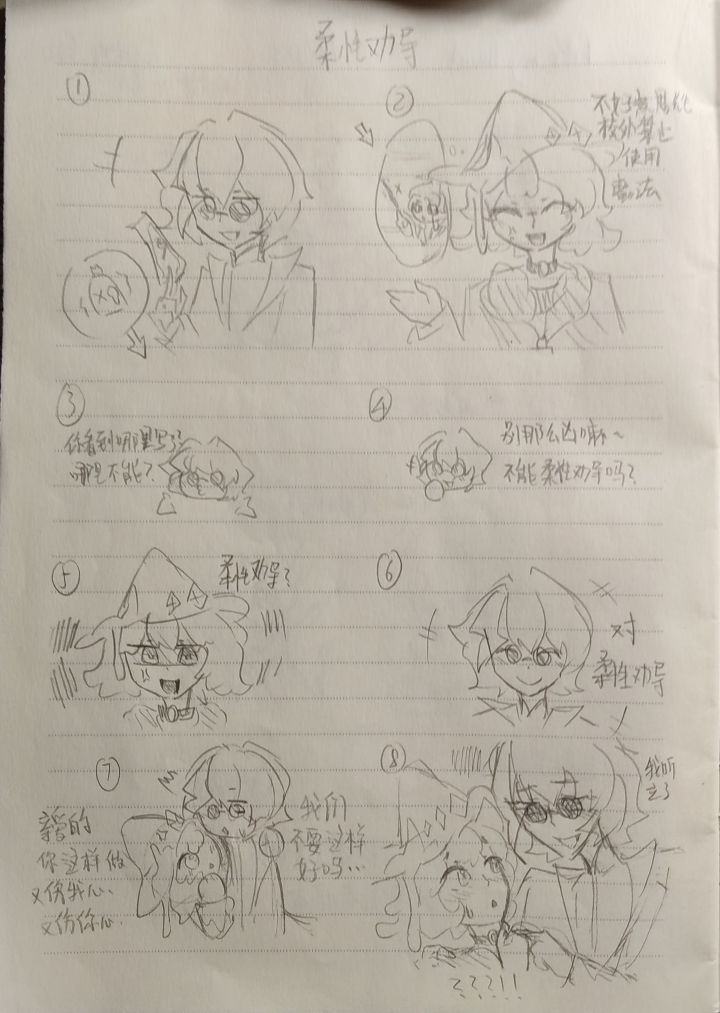 柔性劝导
①
②
不好意思
校外禁止
使用
魔法
③
你看到哪里写了
哪里不能？
④
别那么凶嘛～
不能柔性劝导吗？
⑤
柔性劝导？
⑥
对
柔性劝导
⑦
亲爱的
你这样做
又伤我心
又伤你心
我们
不要这样
好吗…
⑧
我听
？？？!!